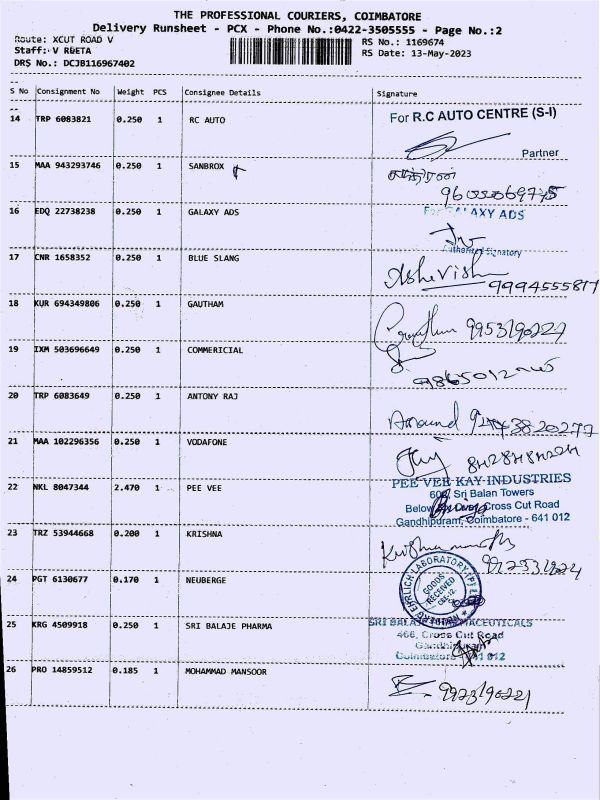 THE PROFESSIONAL COURIERS, COIMBATORE
Delivery Runsheet - PCX - Phone No.:0422-3505555 - Page No.:2
Route: XCUT ROAD V
RS No.: 1169674
Staff: V REETA
RS Date: 13-May-2023
DRS No.: DCJB116967402
S No Consignment No Weight PCS Consignee Details Signature
14 TRP 6083821 0.250 1 RC AUTO For R.C AUTO CENTRE (S-I)
Partner
15 MAA 943293746 0.250 1 SANBROX
16 EDQ 22738238 0.250 1 GALAXY ADS For GALAXY ADS
Authorized Signatory
17 CNR 1658352 0.250 1 BLUE SLANG
9994555817
18 KUR 694349806 0.250 1 GAUTHAM
Gowtham 9953190224
19 IXM 503696649 0.250 1 COMMERICIAL
20 TRP 6083649 0.250 1 ANTONY RAJ
21 MAA 102296356 0.250 1 VODAFONE
22 NKL 8047344 2.470 1 PEE VEE PEE VEE KAY INDUSTRIES
Sri Balan Towers
Cross Cut Road
Gandhipuram, Coimbatore - 641 012
23 TRZ 53944668 0.200 1 KRISHNA
24 PGT 6130677 0.170 1 NEUBERGE
EHRLICH LABORATORY (P)
GOODS
RECEIVED
25 KRG 4509918 0.250 1 SRI BALAJE PHARMA SRI BALAJE PHARMACEUTICALS
466, Cross Cut Road
Gandhipuram
Coimbatore - 641 012
26 PRO 14859512 0.185 1 MOHAMMAD MANSOOR
9923190221